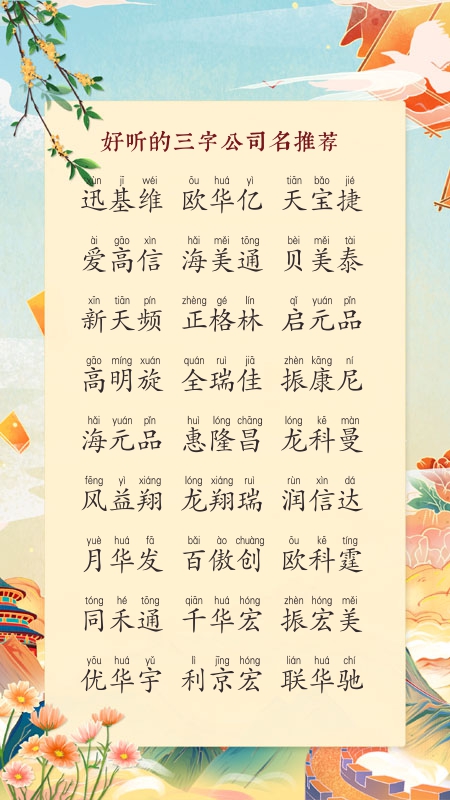 好听的三字公司名推荐
xùn jī wéi ōu huá yì tiān bǎo jié
迅基维 欧华亿 天宝捷
ài gāo xìn hǎi měi tōng bèi měi tài
爱高信 海美通 贝美泰
xīn tiān pín zhèng gé lín qǐ yuán pǐn
新天频 正格林 启元品
gāo míng xuán quán ruì jiā zhèn kāng ní
高明旋 全瑞佳 振康尼
hǎi yuán pǐn huì lóng chāng lóng kē màn
海元品 惠隆昌 龙科曼
fēng yì xiáng lóng xiáng ruì rùn xìn dá
风益翔 龙翔瑞 润信达
yuè huá fā bǎi ào chuàng ōu kē tíng
月华发 百傲创 欧科霆
tóng hé tōng qiān huá hóng zhèn hóng měi
同禾通 千华宏 振宏美
yōu huá yǔ lì jīng hóng lián huá chí
优华宇 利京宏 联华驰